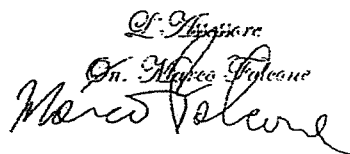 L'Assessore
On. Marco Falcone
Marco Falcone